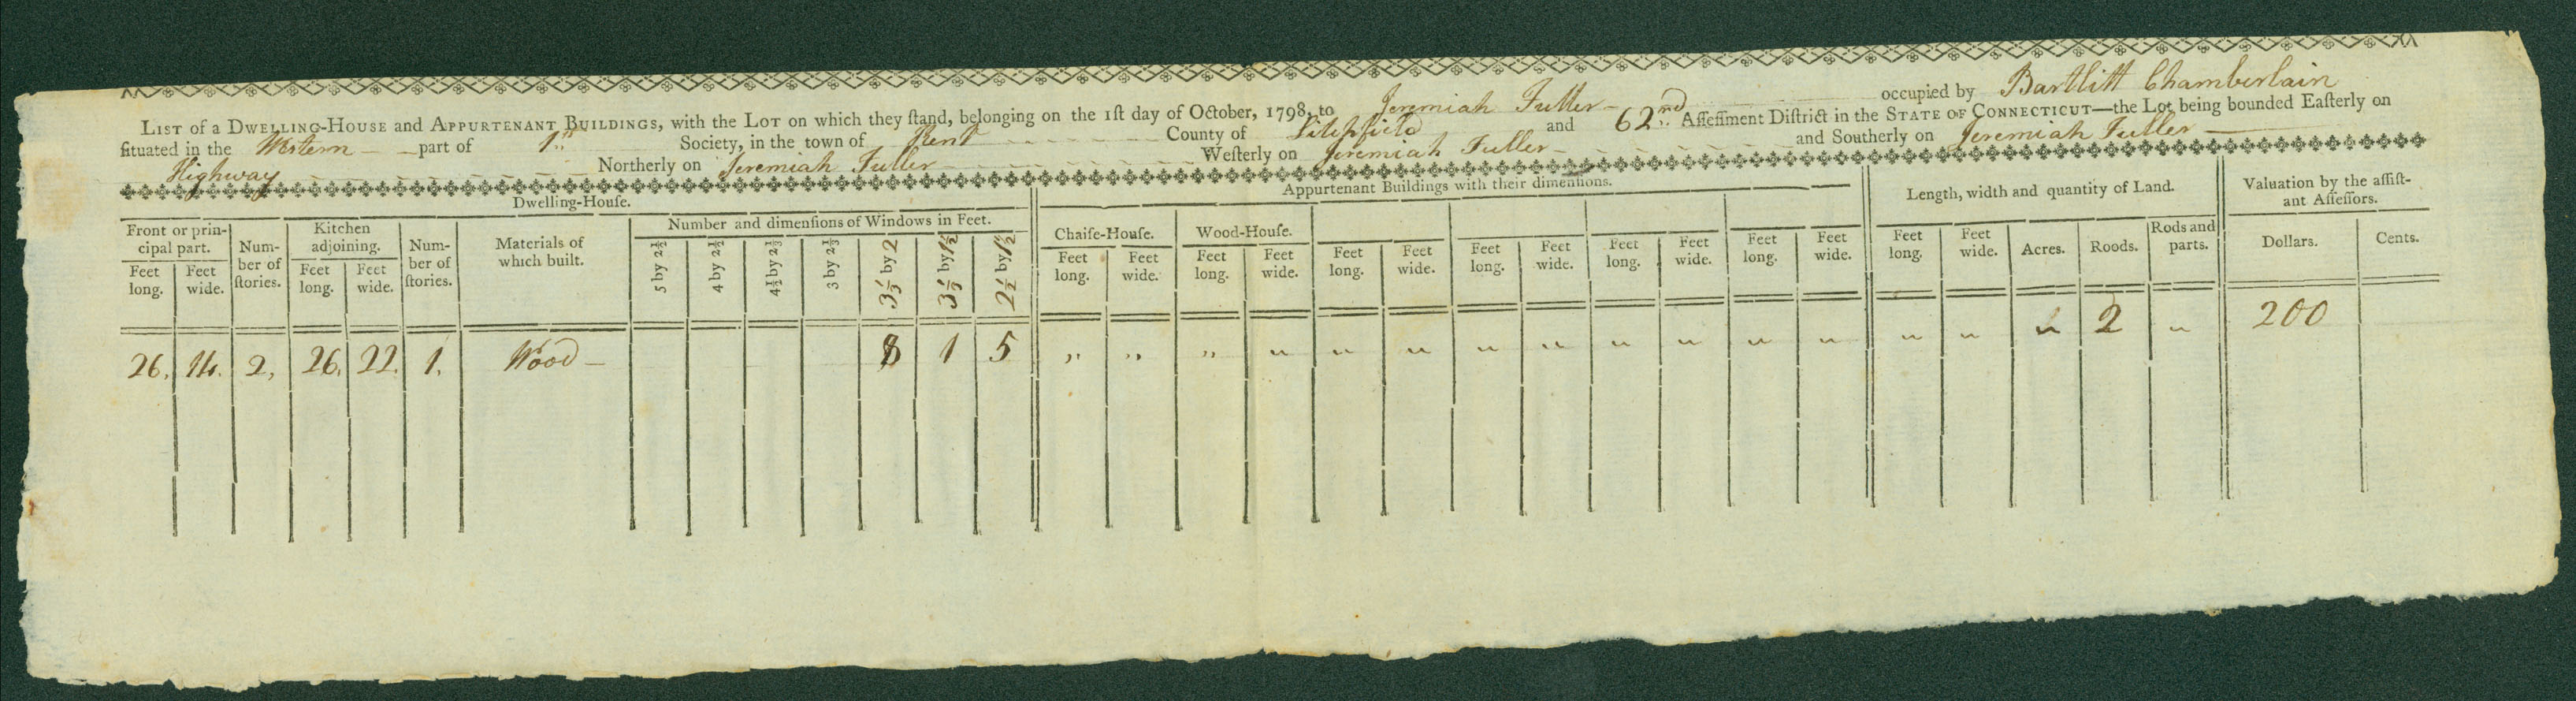 LIST of a DWELLING-HOUSE and APPURTENANT BUILDINGS, with the LOT on which they ſtand, belonging on the 1ſt day of October, 1798, to Jeremiah Fuller occupied by Bartlitt Chamberlain
ſituated in the Western part of 1st Society, in the town of Kent County of Litchfield and 62nd Aſſeſſment Diſtrict in the STATE OF CONNECTICUT—the Lot being bounded Eaſterly on
Highway Northerly on Jeremiah Fuller Weſterly on Jeremiah Fuller and Southerly on Jeremiah Fuller
Dwelling-Houſe. Appurtenant Buildings with their dimenſions. Length, width and quantity of Land. Valuation by the aſſiſt-
ant Aſſeſſors.
Front or prin-
cipal part.
Feet long. Feet wide.
Num-
ber of
ſtories.
Kitchen
adjoining.
Feet long. Feet wide.
Num-
ber of
ſtories.
Materials of
which built.
Number and dimenſions of Windows in Feet.
5 by 2½ 4 by 2½ 4⅓ by 2⅓ 3 by 2⅓ 3⅓ by 2 3⅓ by 1½ 2½ by 1½
Chaiſe-Houſe. Wood-Houſe.
Feet long. Feet wide. Feet long. Feet wide. Feet long. Feet wide. Feet long. Feet wide. Feet long. Feet wide. Feet long. Feet wide.
Feet long. Feet wide. Acres. Roods. Rods and parts.
Dollars. Cents.
26. 14. 2, 26. 22. 1. Wood 8 1 5 " " " " " " " " " " " " " " " 2 " 200